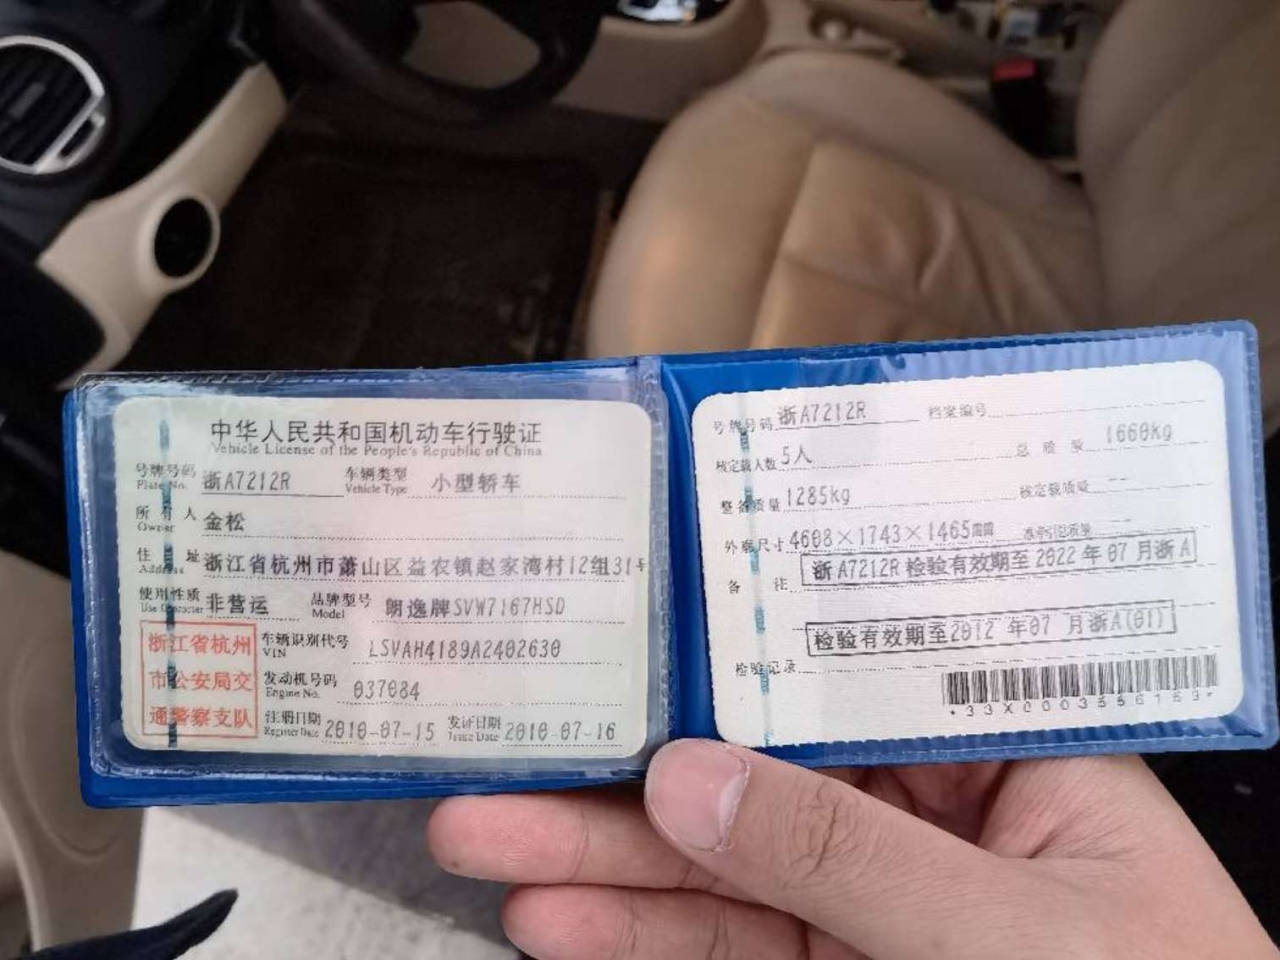 中华人民共和国机动车行驶证
Vehicle License of the People's Republic of China
号牌号码 浙A7212R 车辆类型 小型轿车
Plate No. Vehicle Type
所有人 金松
Owner
住址 浙江省杭州市萧山区益农镇赵家湾村12组31号
Address
使用性质 非营运 品牌型号 朗逸牌SVW7167HSD
Use Character Model
浙江省杭州
市公安局交
通警察支队
车辆识别代号 LSVAH4189A2402630
VIN
发动机号码 037084
Engine No.
注册日期 2010-07-15 发证日期 2010-07-16
Register Date Issue Date
号牌号码 浙A7212R 档案编号
核定载人数 5人 总质量 1660kg
整备质量 1285kg 核定载质量 --
外廓尺寸 4608×1743×1465 准牵引总质量 --
备注 浙A7212R 检验有效期至2022年07月浙A
检验有效期至2012年07月浙A(01)
检验记录